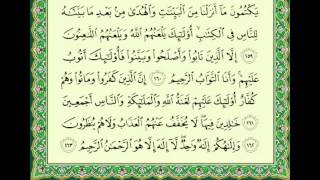 يَكْتُمُونَ مَآ أَنزَلْنَا مِنَ ٱلْبَيِّنَٰتِ وَٱلْهُدَىٰ مِنۢ بَعْدِ مَا بَيَّنَّٰهُ
لِلنَّاسِ فِى ٱلْكِتَٰبِ أُو۟لَٰٓئِكَ يَلْعَنُهُمُ ٱللَّهُ وَيَلْعَنُهُمُ ٱللَّٰعِنُونَ
١٥٩ إِلَّا ٱلَّذِينَ تَابُوا۟ وَأَصْلَحُوا۟ وَبَيَّنُوا۟ فَأُو۟لَٰٓئِكَ أَتُوبُ
عَلَيْهِمْ وَأَنَا ٱلتَّوَّابُ ٱلرَّحِيمُ ١٦٠ إِنَّ ٱلَّذِينَ كَفَرُوا۟ وَمَاتُوا۟ وَهُمْ
كُفَّارٌ أُو۟لَٰٓئِكَ عَلَيْهِمْ لَعْنَةُ ٱللَّهِ وَٱلْمَلَٰٓئِكَةِ وَٱلنَّاسِ أَجْمَعِينَ
١٦١ خَٰلِدِينَ فِيهَا لَا يُخَفَّفُ عَنْهُمُ ٱلْعَذَابُ وَلَا هُمْ يُنظَرُونَ
١٦٢ وَإِلَٰهُكُمْ إِلَٰهٌ وَٰحِدٌ لَّآ إِلَٰهَ إِلَّا هُوَ ٱلرَّحْمَٰنُ ٱلرَّحِيمُ ١٦٣